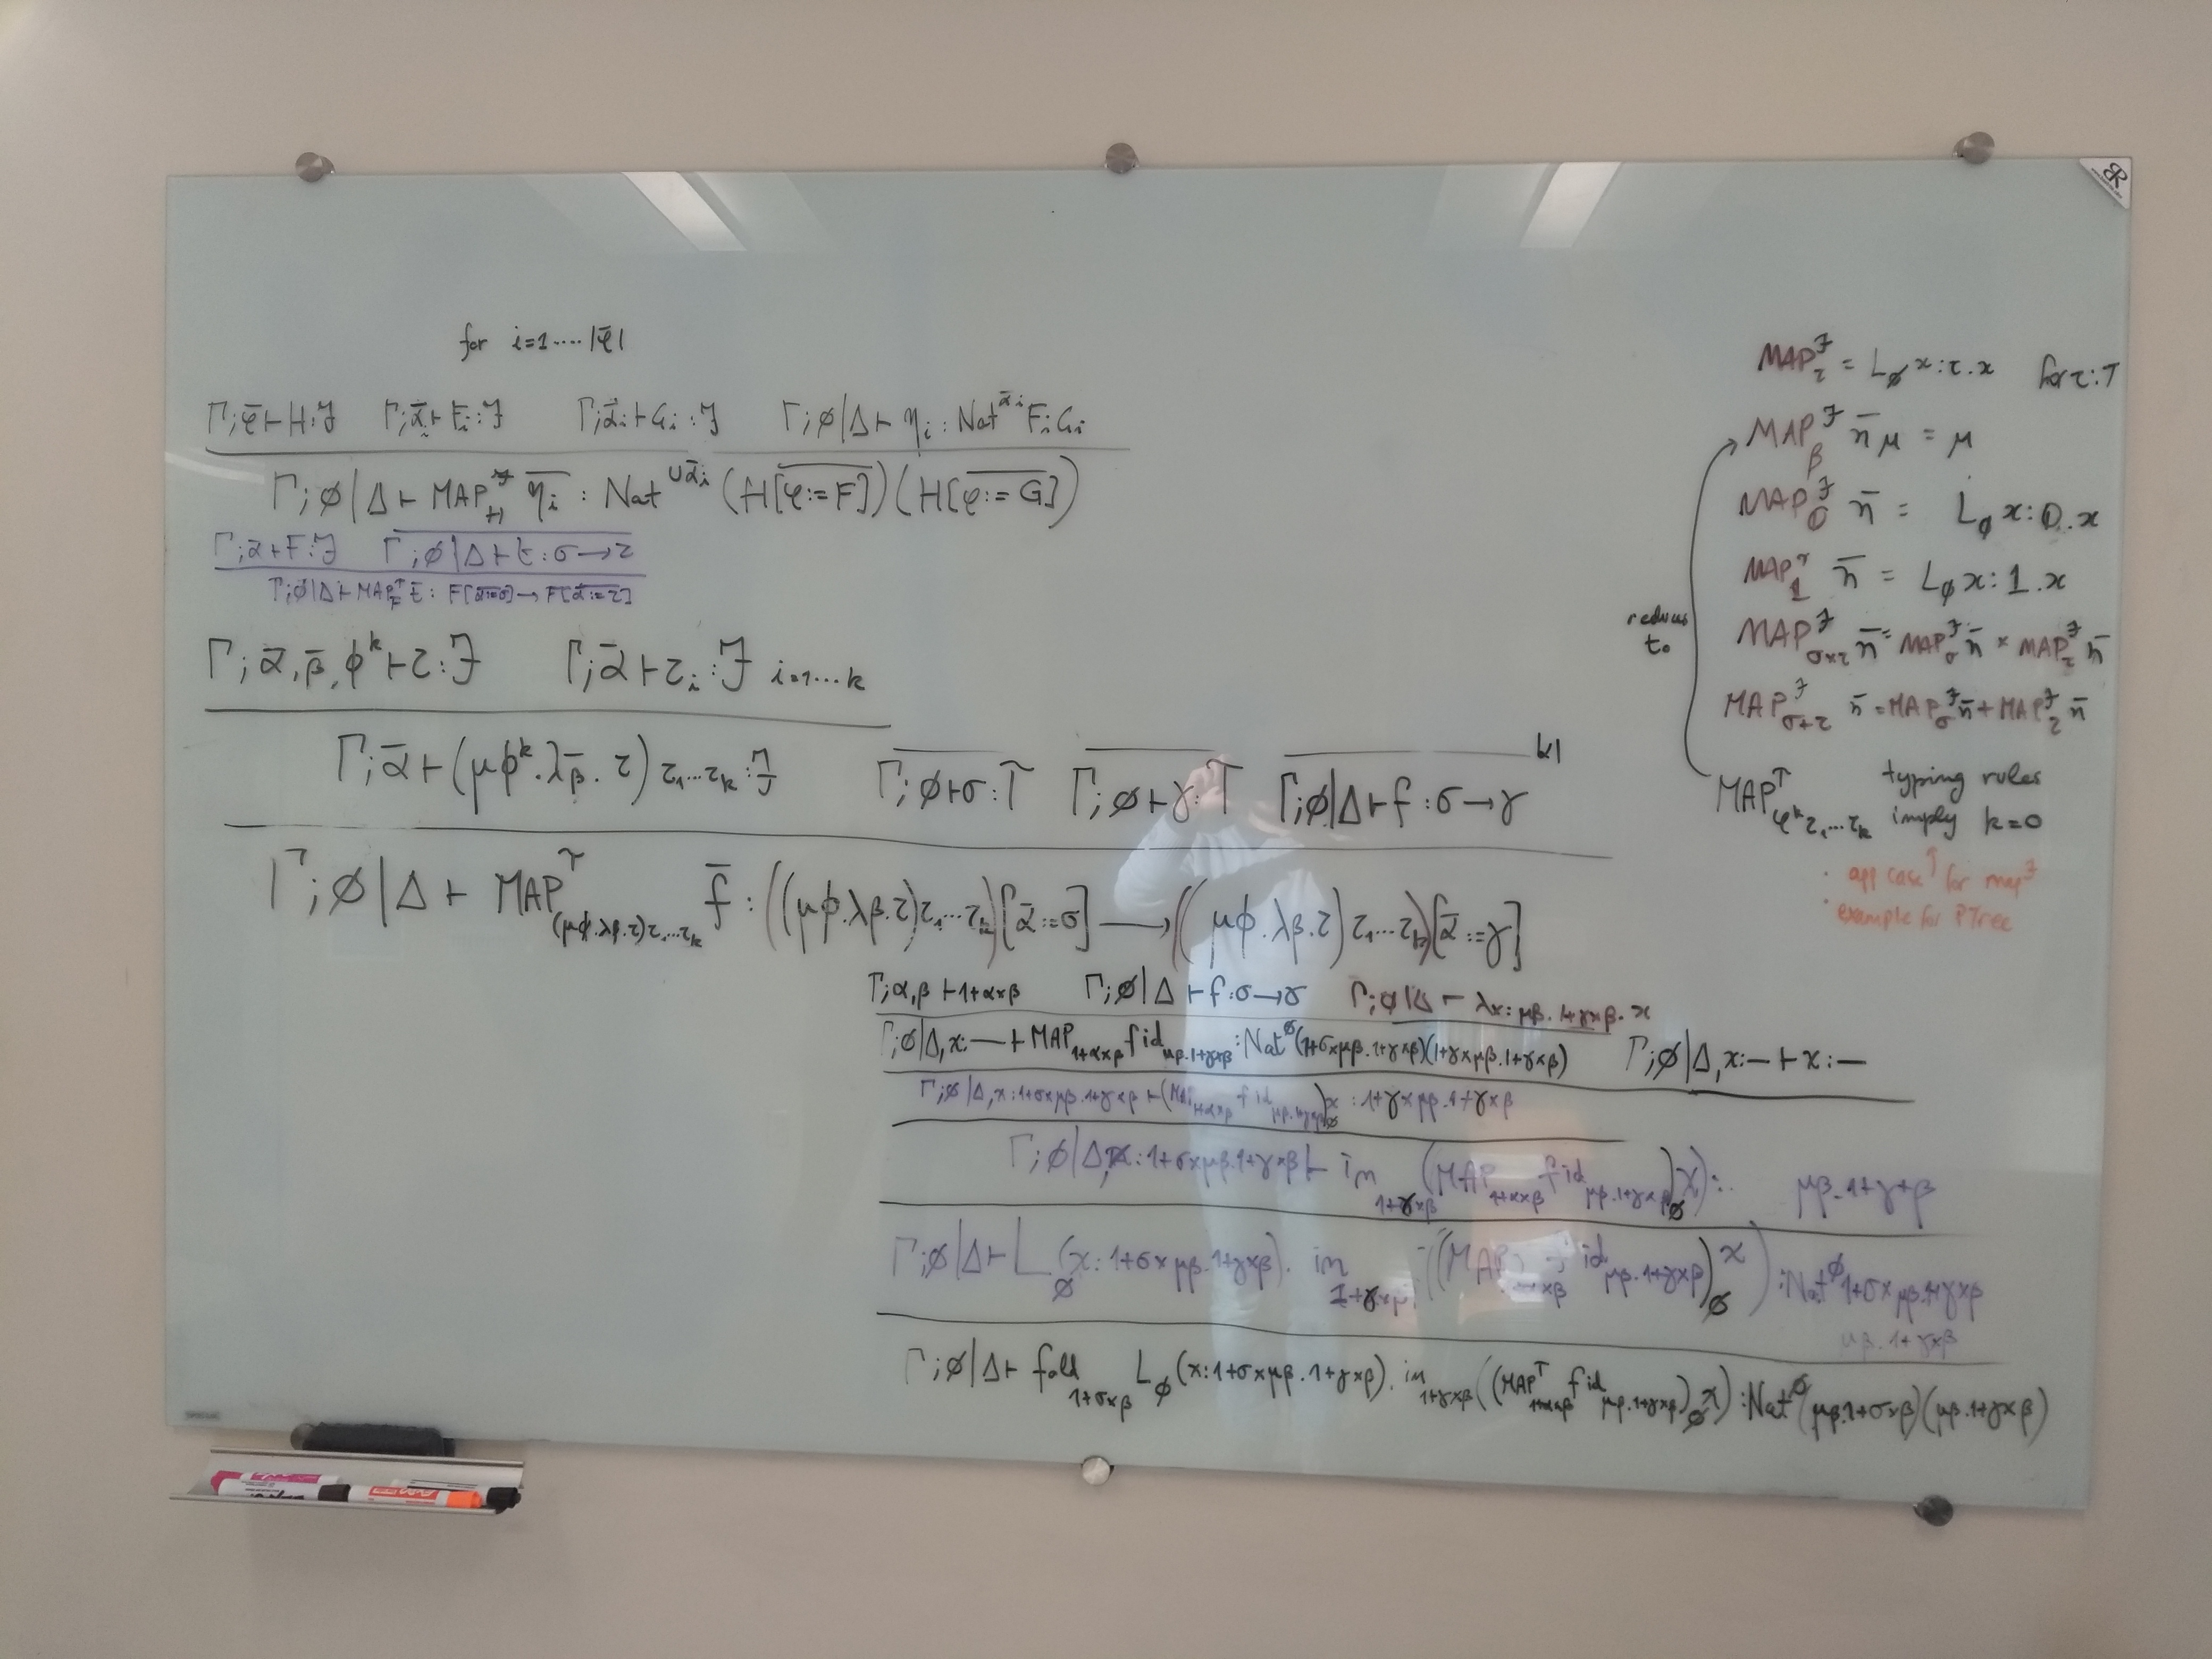 for i=1....|φ̄|
Γ;φ̄ ⊢ H:ℱ Γ;ᾱᵢ ⊢ Fᵢ:ℱ Γ;ᾱᵢ ⊢ Gᵢ:ℱ Γ;∅|Δ ⊢ ηᵢ : Nat^ᾱᵢ Fᵢ Gᵢ
Γ;∅|Δ ⊢ MAP^ℱ_H η̄ᵢ : Nat^∪ᾱᵢ (H[φ:=F]) (H[φ:=G])
Γ;ᾱ ⊢ F:ℱ Γ;∅|Δ ⊢ t : σ → τ
Γ;∅|Δ ⊢ MAP^T_F t̄ : F[α:=σ] → F[α:=τ]
Γ;ᾱ,β̄,ϕ^k ⊢ τ:ℱ Γ;ᾱ ⊢ τᵢ:ℱ i=1...k
Γ;ᾱ ⊢ (μϕ^k.λβ̄.τ) τ₁...τ_k : ℱ Γ;∅ ⊢ σ:T Γ;∅ ⊢ γ:T Γ;∅|Δ ⊢ f : σ → γ
Γ;∅|Δ ⊢ MAP^T_(μϕ.λβ.τ)τ₁...τ_k f̄ : ((μϕ.λβ.τ)τ₁...τ_k)[ᾱ:=σ] → ((μϕ.λβ.τ)τ₁...τ_k)[ᾱ:=γ]
Γ;α,β ⊢ 1+α×β Γ;∅|Δ ⊢ f:σ→γ Γ;∅|Δ ⊢ λx:μβ.1+γ×β.x
Γ;∅|Δ,x:— ⊢ MAP_1+α×β f id_μβ.1+γ×β : Nat^∅(1+σ×μβ.1+γ×β)(1+γ×μβ.1+γ×β) Γ;∅|Δ,x:— ⊢ x:—
Γ;∅|Δ,x:1+σ×μβ.1+γ×β ⊢ (MAP_1+α×β f id_μβ.1+γ×β)_∅ x : 1+γ×μβ.1+γ×β
Γ;∅|Δ,x:1+σ×μβ.1+γ×β ⊢ in_1+γ×β (MAP_1+α×β f id_μβ.1+γ×β)_∅ x): μβ.1+γ+β
Γ;∅|Δ ⊢ L_∅(x:1+σ×μβ.1+γ×β). in_1+γ×β ((MAP f id_μβ.1+γ×β)_∅ x) :Nat^∅ 1+σ×μβ.1+γ×β
μβ.1+γ×β
Γ;∅|Δ ⊢ fold_1+σ×β L_∅(x:1+σ×μβ.1+γ×β). in_1+γ×β((MAP^T_1+α×β f id_μβ.1+γ×β)_∅ x) :Nat^∅(μβ.1+σ×β)(μβ.1+γ×β)
MAP^ℱ_τ = L_∅ x:τ.x for τ:T
MAP^ℱ_β n̄ μ = μ
MAP^ℱ_0 n̄ = L_∅ x:0.x
MAP^ℱ_1 n̄ = L_∅ x:1.x
reduces
to
MAP^ℱ_σ×τ n̄ = MAP^ℱ_σ n̄ × MAP^ℱ_τ n̄
MAP^ℱ_σ+τ n̄ = MAP^ℱ_σ n̄ + MAP^ℱ_τ n̄
MAP^T_φ^k τ₁...τ_k typing rules
imply k=0
· app case for map^ℱ
· example for PTree